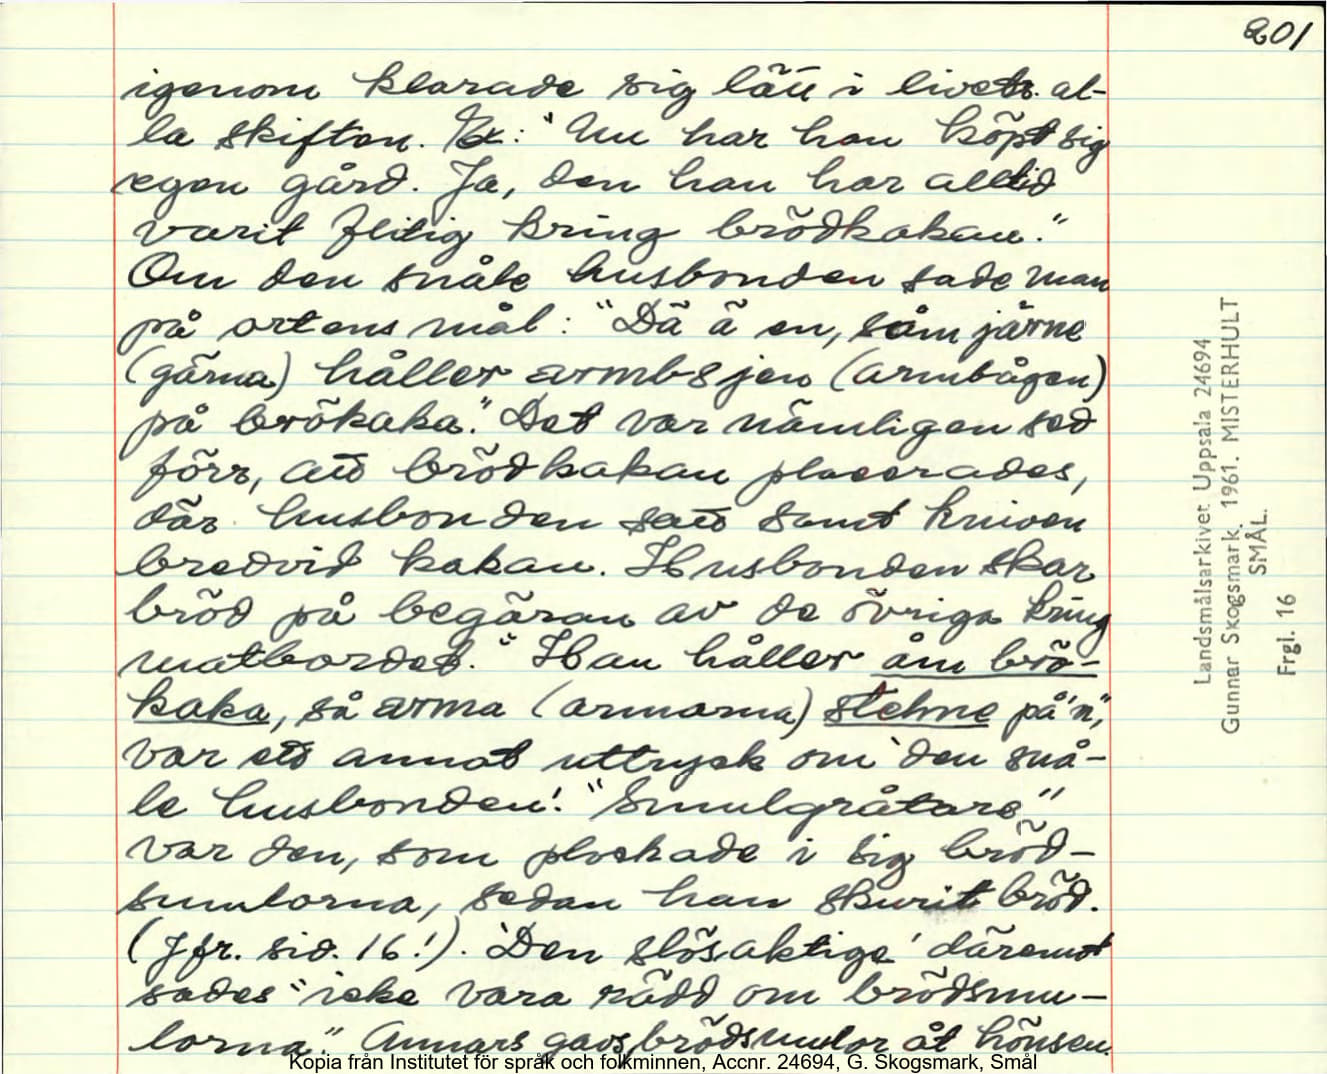 201
igenom klarade sig lätt i livets al-
la skiften. Ex: "Nu har han köpt sig
egen gård. Ja, den han har alltid
varit flitig kring brödkakan."
Om den snåle husbonden sade man
på ortens mål: "Dä ä en, såm järne
(gärna) håller armbsjen (armbågen)
på brökaka." Det var nämligen sed
förr, att brödkakan placerades,
där husbonden satt samt kniven
bredvid kakan. Husbonden skar
bröd på begäran av de övriga kring
matbordet. "Han håller åm brö-
kaka, så arma (armarna) stehne på'n",
var ett annat uttryck om den snå-
le husbonden. "Smulgråtare"
var den, som plockade i sig bröd-
smulorna, sedan han skurit bröd.
(Jfr. sid. 16!). Den slösaktige däremot
sades "icke vara rädd om brödsmu-
lorna." Annars gavs brödsmulor åt hönsen.
Landsmålsarkivet Uppsala 24694
Gunnar Skogsmark. 1961. MISTERHULT
SMÅL.
Frgl. 16
Kopia från Institutet för språk och folkminnen, Accnr. 24694, G. Skogsmark, Smål